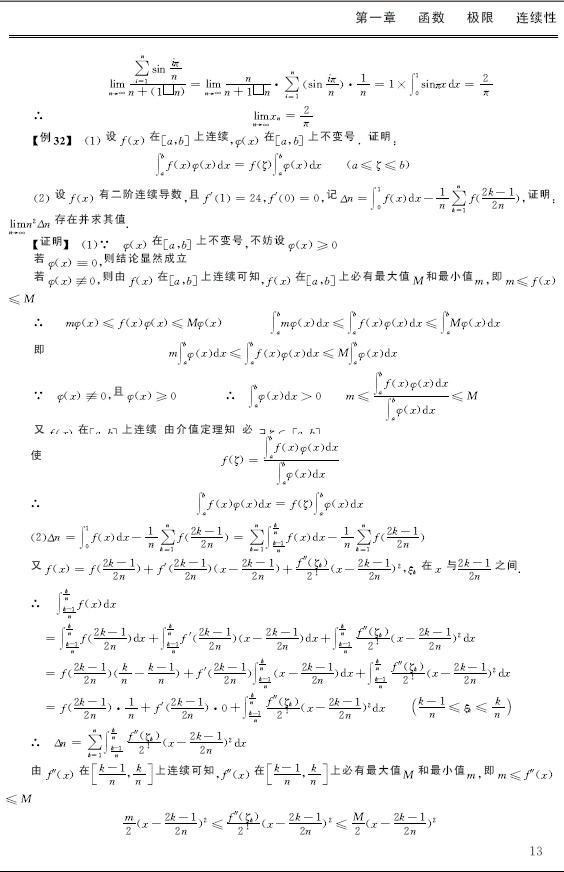 第一章 函数 极限 连续性
lim_{n→∞} \frac{\sum_{i=1}^{n} sin \frac{iπ}{n}}{n+(1□n)} = lim_{n→∞} \frac{n}{n+1□n} · \sum_{i=1}^{n} (sin \frac{iπ}{n}) · \frac{1}{n} = 1×∫_0^1 sinπx dx = \frac{2}{π}
∴ lim_{n→∞} x_n = \frac{2}{π}
【例 32】 (1) 设 f(x) 在[a,b] 上连续,φ(x) 在[a,b] 上不变号. 证明:
∫_a^b f(x)φ(x)dx = f(ζ)∫_a^b φ(x)dx (a ≤ ζ ≤ b)
(2) 设 f(x) 有二阶连续导数,且 f′(1) = 24,f′(0) = 0,记 Δn = ∫_0^1 f(x)dx − \frac{1}{n}\sum_{k=1}^{n} f(\frac{2k−1}{2n}),证明:
lim_{n→∞} n²Δn 存在并求其值.
【证明】 (1)∵ φ(x) 在[a,b] 上不变号,不妨设 φ(x) ≥ 0
若 φ(x) ≡ 0,则结论显然成立
若 φ(x) ≢ 0,则由 f(x) 在[a,b] 上连续可知,f(x) 在[a,b] 上必有最大值 M 和最小值 m,即 m ≤ f(x)
≤ M
∴ mφ(x) ≤ f(x)φ(x) ≤ Mφ(x) ∫_a^b mφ(x)dx ≤ ∫_a^b f(x)φ(x)dx ≤ ∫_a^b Mφ(x)dx
即 m∫_a^b φ(x)dx ≤ ∫_a^b f(x)φ(x)dx ≤ M∫_a^b φ(x)dx
∵ φ(x) ≢ 0,且 φ(x) ≥ 0 ∴ ∫_a^b φ(x)dx > 0 m ≤ \frac{∫_a^b f(x)φ(x)dx}{∫_a^b φ(x)dx} ≤ M
又 f(x) 在[a,b] 上连续 由介值定理知 必
使 f(ζ) = \frac{∫_a^b f(x)φ(x)dx}{∫_a^b φ(x)dx}
∴ ∫_a^b f(x)φ(x)dx = f(ζ)∫_a^b φ(x)dx
(2)Δn = ∫_0^1 f(x)dx − \frac{1}{n}\sum_{k=1}^{n} f(\frac{2k−1}{2n}) = \sum_{k=1}^{n} ∫_{\frac{k−1}{n}}^{\frac{k}{n}} f(x)dx − \frac{1}{n}\sum_{k=1}^{n} f(\frac{2k−1}{2n})
又 f(x) = f(\frac{2k−1}{2n}) + f′(\frac{2k−1}{2n})(x−\frac{2k−1}{2n}) + \frac{f″(ζ_k)}{2!}(x−\frac{2k−1}{2n})²,ξ_k 在 x 与 \frac{2k−1}{2n} 之间.
∴ ∫_{\frac{k−1}{n}}^{\frac{k}{n}} f(x)dx
= ∫_{\frac{k−1}{n}}^{\frac{k}{n}} f(\frac{2k−1}{2n})dx + ∫_{\frac{k−1}{n}}^{\frac{k}{n}} f′(\frac{2k−1}{2n})(x−\frac{2k−1}{2n})dx + ∫_{\frac{k−1}{n}}^{\frac{k}{n}} \frac{f″(ζ_k)}{2!}(x−\frac{2k−1}{2n})²dx
= f(\frac{2k−1}{2n})(\frac{k}{n}−\frac{k−1}{n}) + f′(\frac{2k−1}{2n})∫_{\frac{k−1}{n}}^{\frac{k}{n}} (x−\frac{2k−1}{2n})dx + ∫_{\frac{k−1}{n}}^{\frac{k}{n}} \frac{f″(ζ_k)}{2!}(x−\frac{2k−1}{2n})²dx
= f(\frac{2k−1}{2n})·\frac{1}{n} + f′(\frac{2k−1}{2n})·0 + ∫_{\frac{k−1}{n}}^{\frac{k}{n}} \frac{f″(ζ_k)}{2!}(x−\frac{2k−1}{2n})²dx (\frac{k−1}{n} ≤ ξ_k ≤ \frac{k}{n})
∴ Δn = \sum_{k=1}^{n} ∫_{\frac{k−1}{n}}^{\frac{k}{n}} \frac{f″(ζ_k)}{2!}(x−\frac{2k−1}{2n})²dx
由 f″(x) 在[\frac{k−1}{n},\frac{k}{n}]上连续可知,f″(x) 在[\frac{k−1}{n},\frac{k}{n}]上必有最大值 M 和最小值 m,即 m ≤ f″(x)
≤ M
\frac{m}{2}(x−\frac{2k−1}{2n})² ≤ \frac{f″(ζ_k)}{2!}(x−\frac{2k−1}{2n})² ≤ \frac{M}{2}(x−\frac{2k−1}{2n})²
13